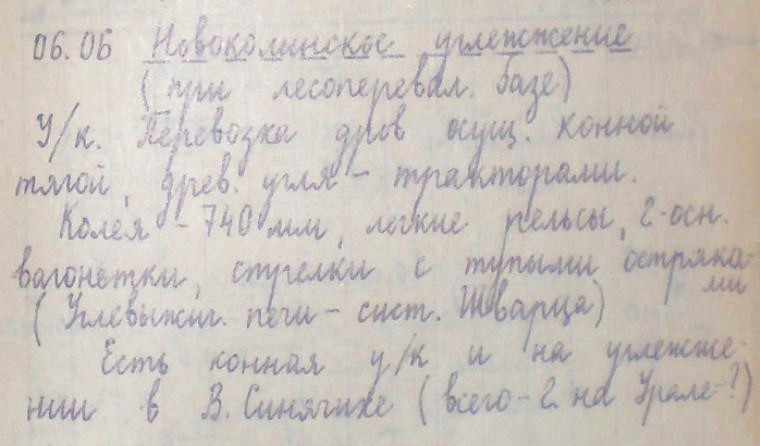 06.06 Новоколинское углежжение
(при лесоперевал. базе)
У/к. Перевозка дров осущ. конной
тягой, древ. угля - тракторами.
Колея - 740 мм, легкие рельсы, 2-осн.
вагонетки, стрелки с тупыми остряка-
ми
(Углевыжиг. печи - сист. Шварца)
Есть конная у/к и на углежже-
нии в В. Синячихе (всего - 2 на Урале - ?)